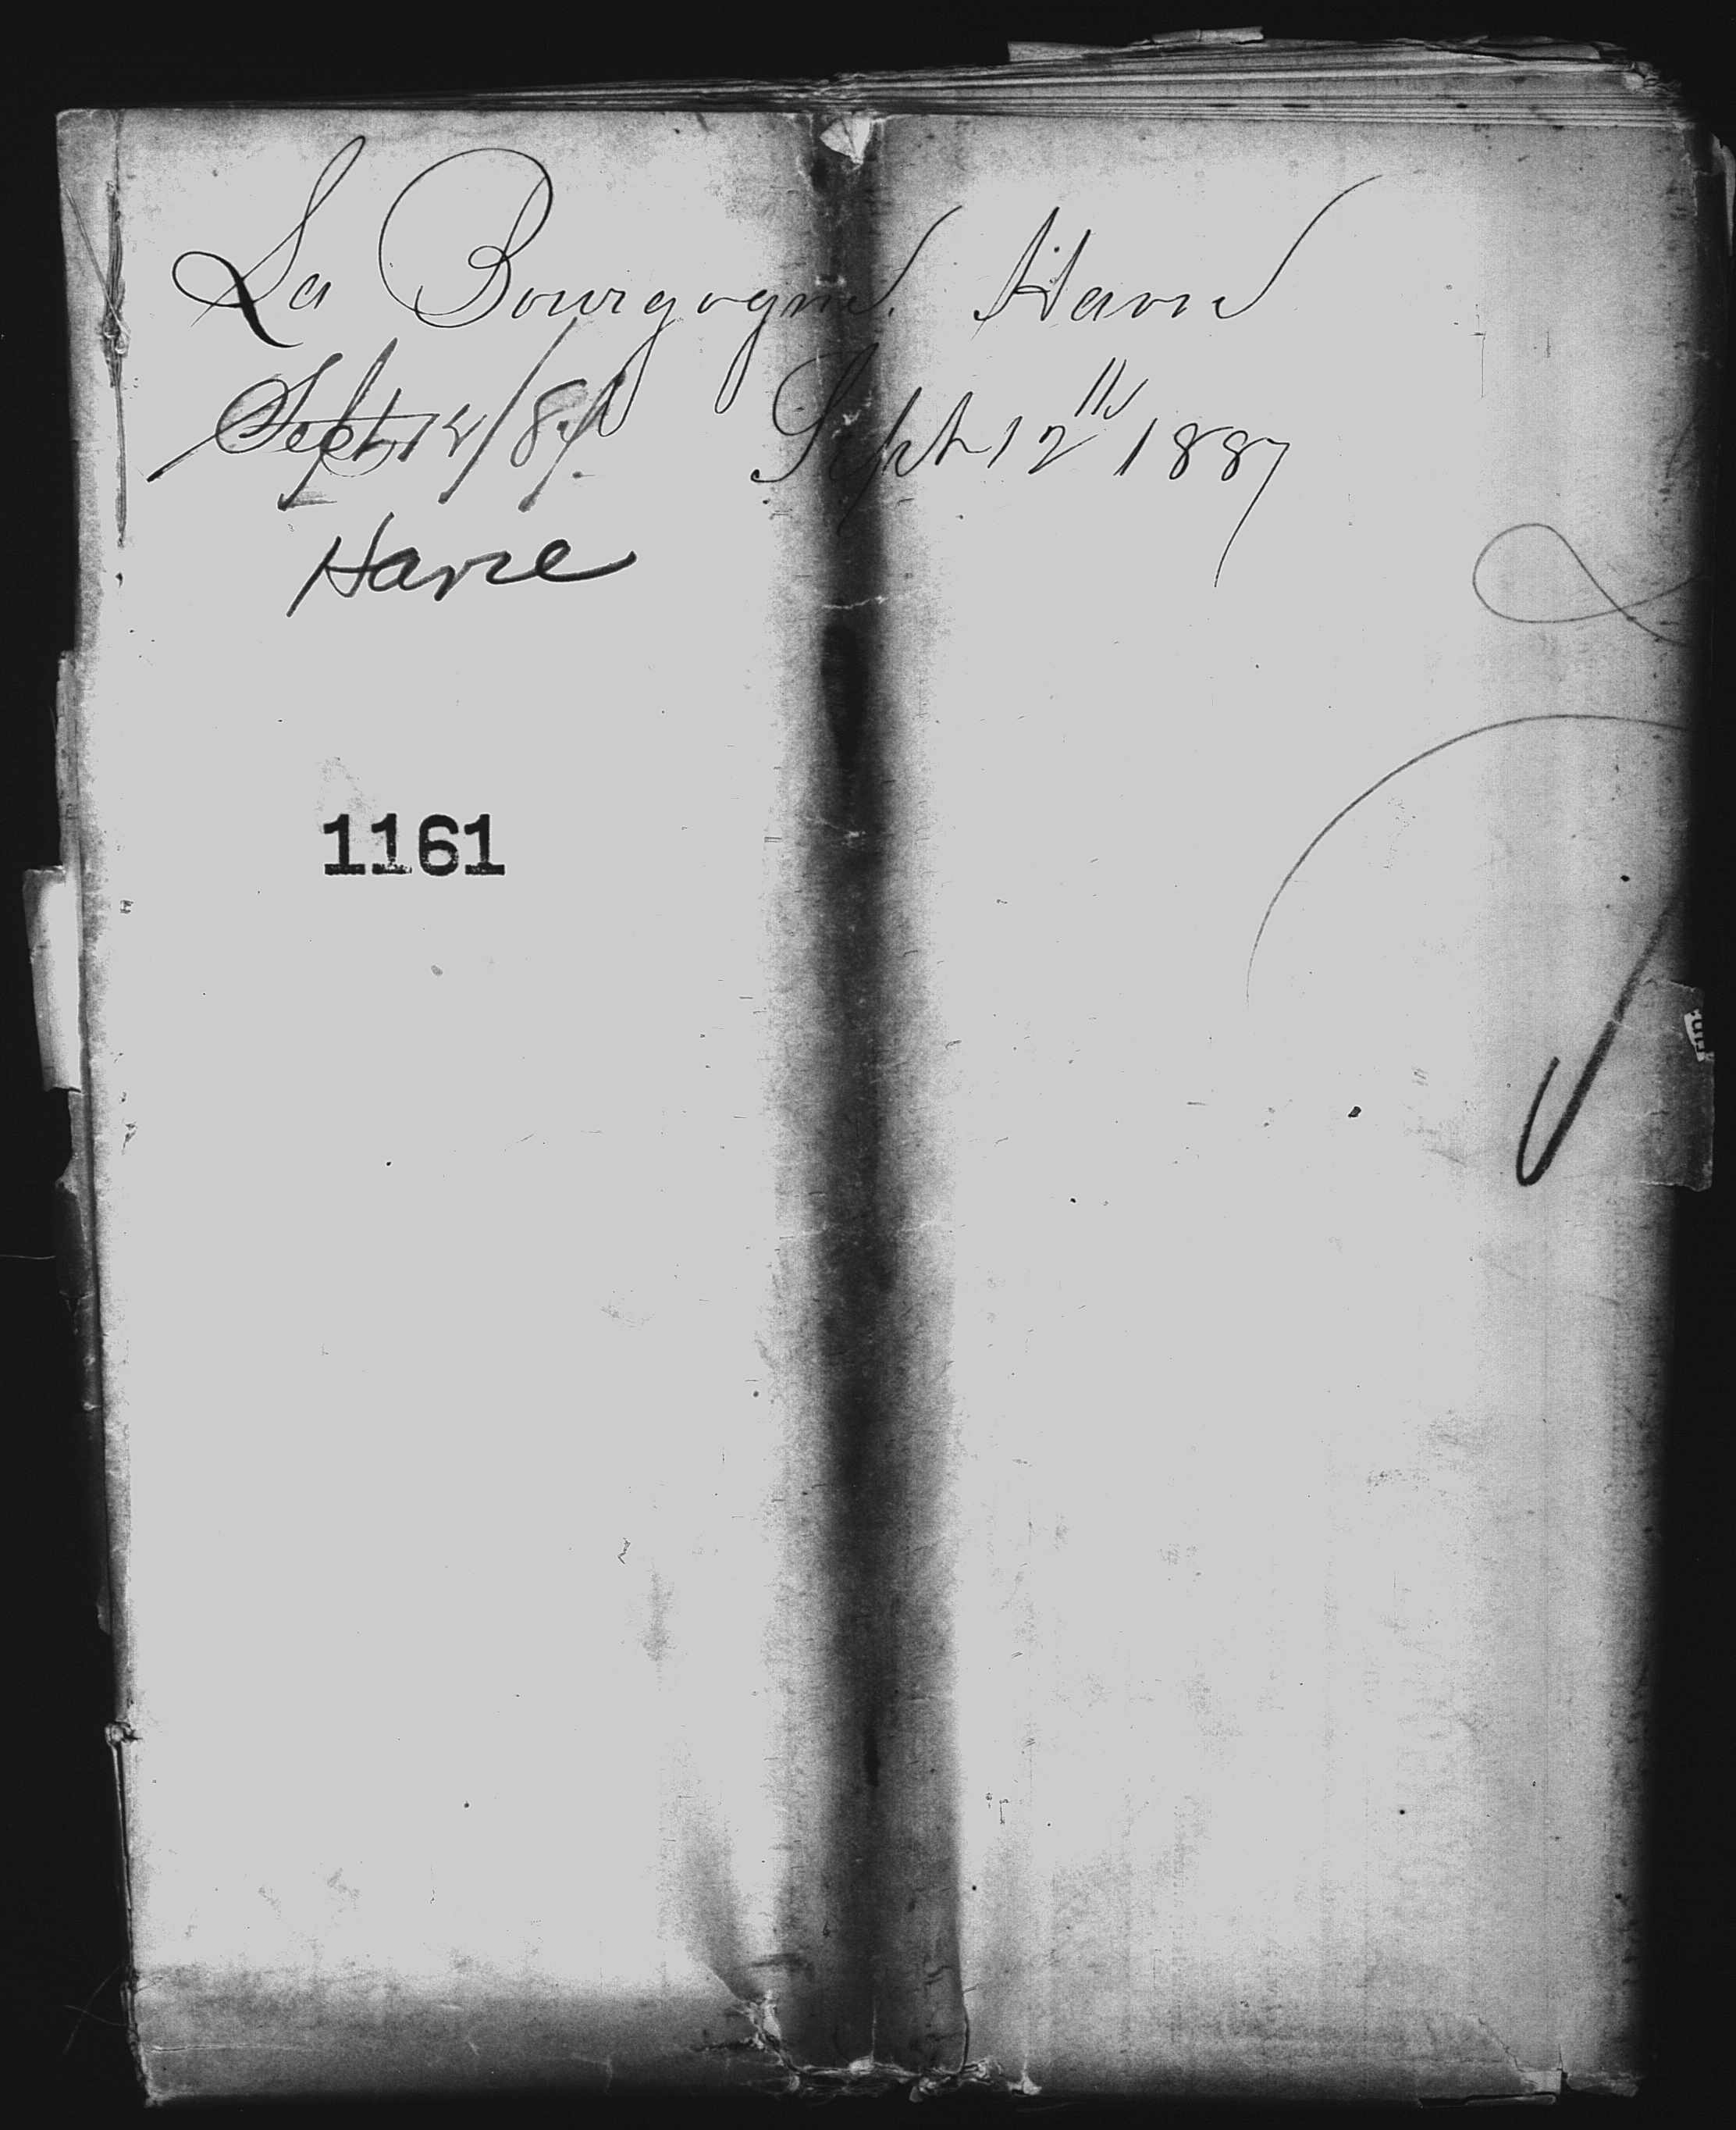 La Bourgogne. Havre
Sept 12/87. Sept 12th 1887
Havre
1161